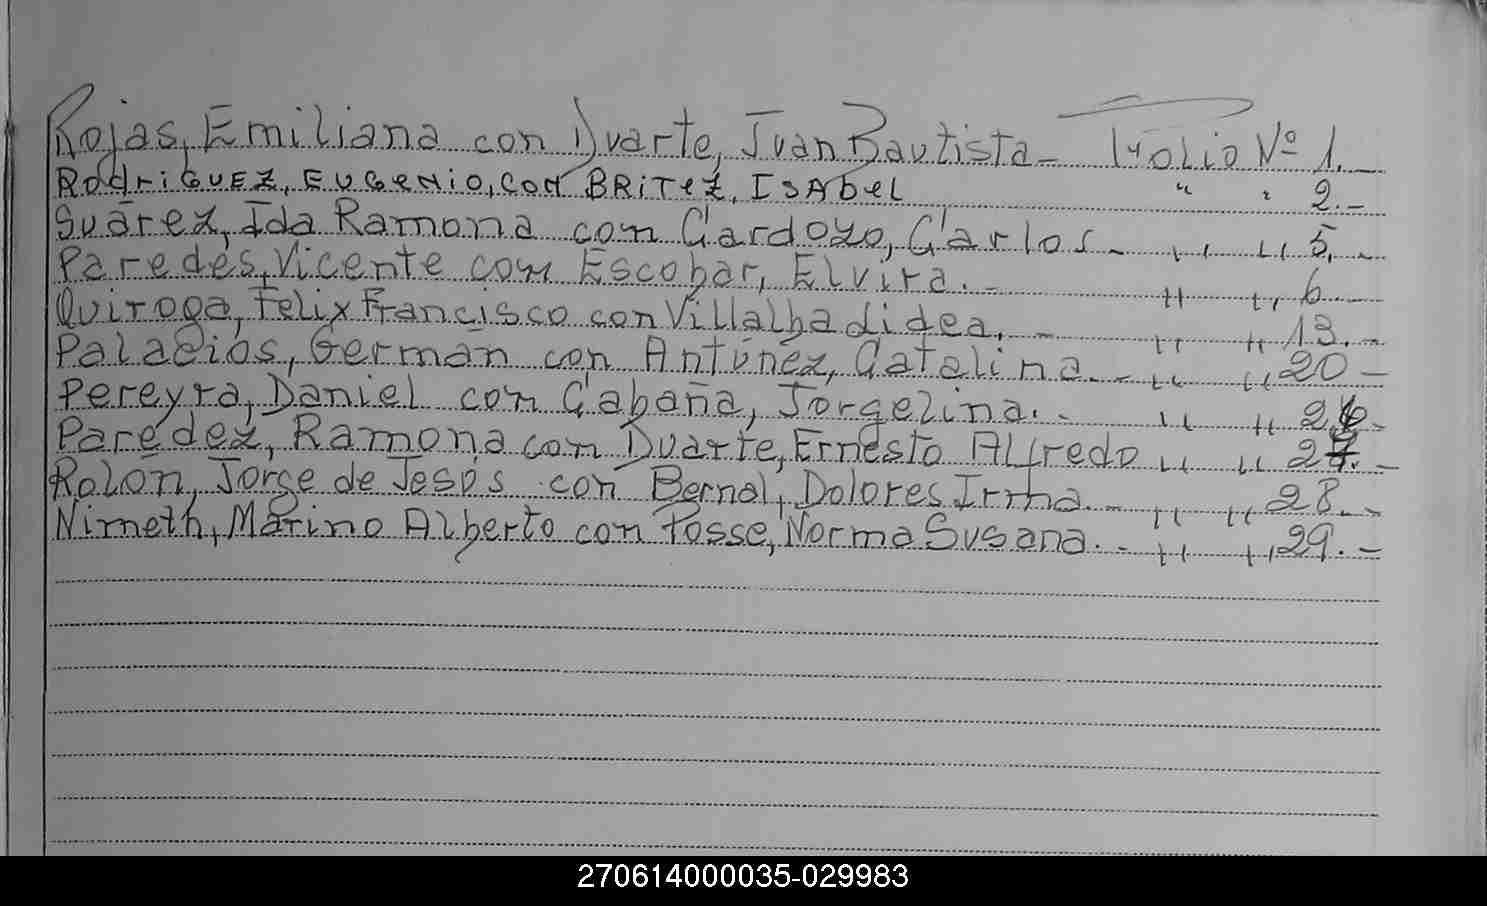 Rojas, Emiliana con Duarte, Juan Bautista - Folio Nº 1.-
RodriGUEZ, EUGENIO, CON BRITEZ, ISABEL " " 2.-
Suárez, Ida Ramona con Cardozo, Carlos - " " 5.-
Paredes, Vicente con Escobar, Elvira.- " " 6.-
Quiroga, Felix Francisco con Villalba didea.- " " 13.-
Palacios, Germán con Antúnez, Catalina.- " " 20-
Pereyra, Daniel con Cabaña, Jorgelina.- " " 26.-
Paredez, Ramona con Duarte, Ernesto Alfredo " " 27.-
Rolón, Jorge de Jesús con Bernal, Dolores Irma.- " " 28.-
Nimeth, Marino Alberto con Posse, Norma Susana.- " " 29.-
270614000035-029983